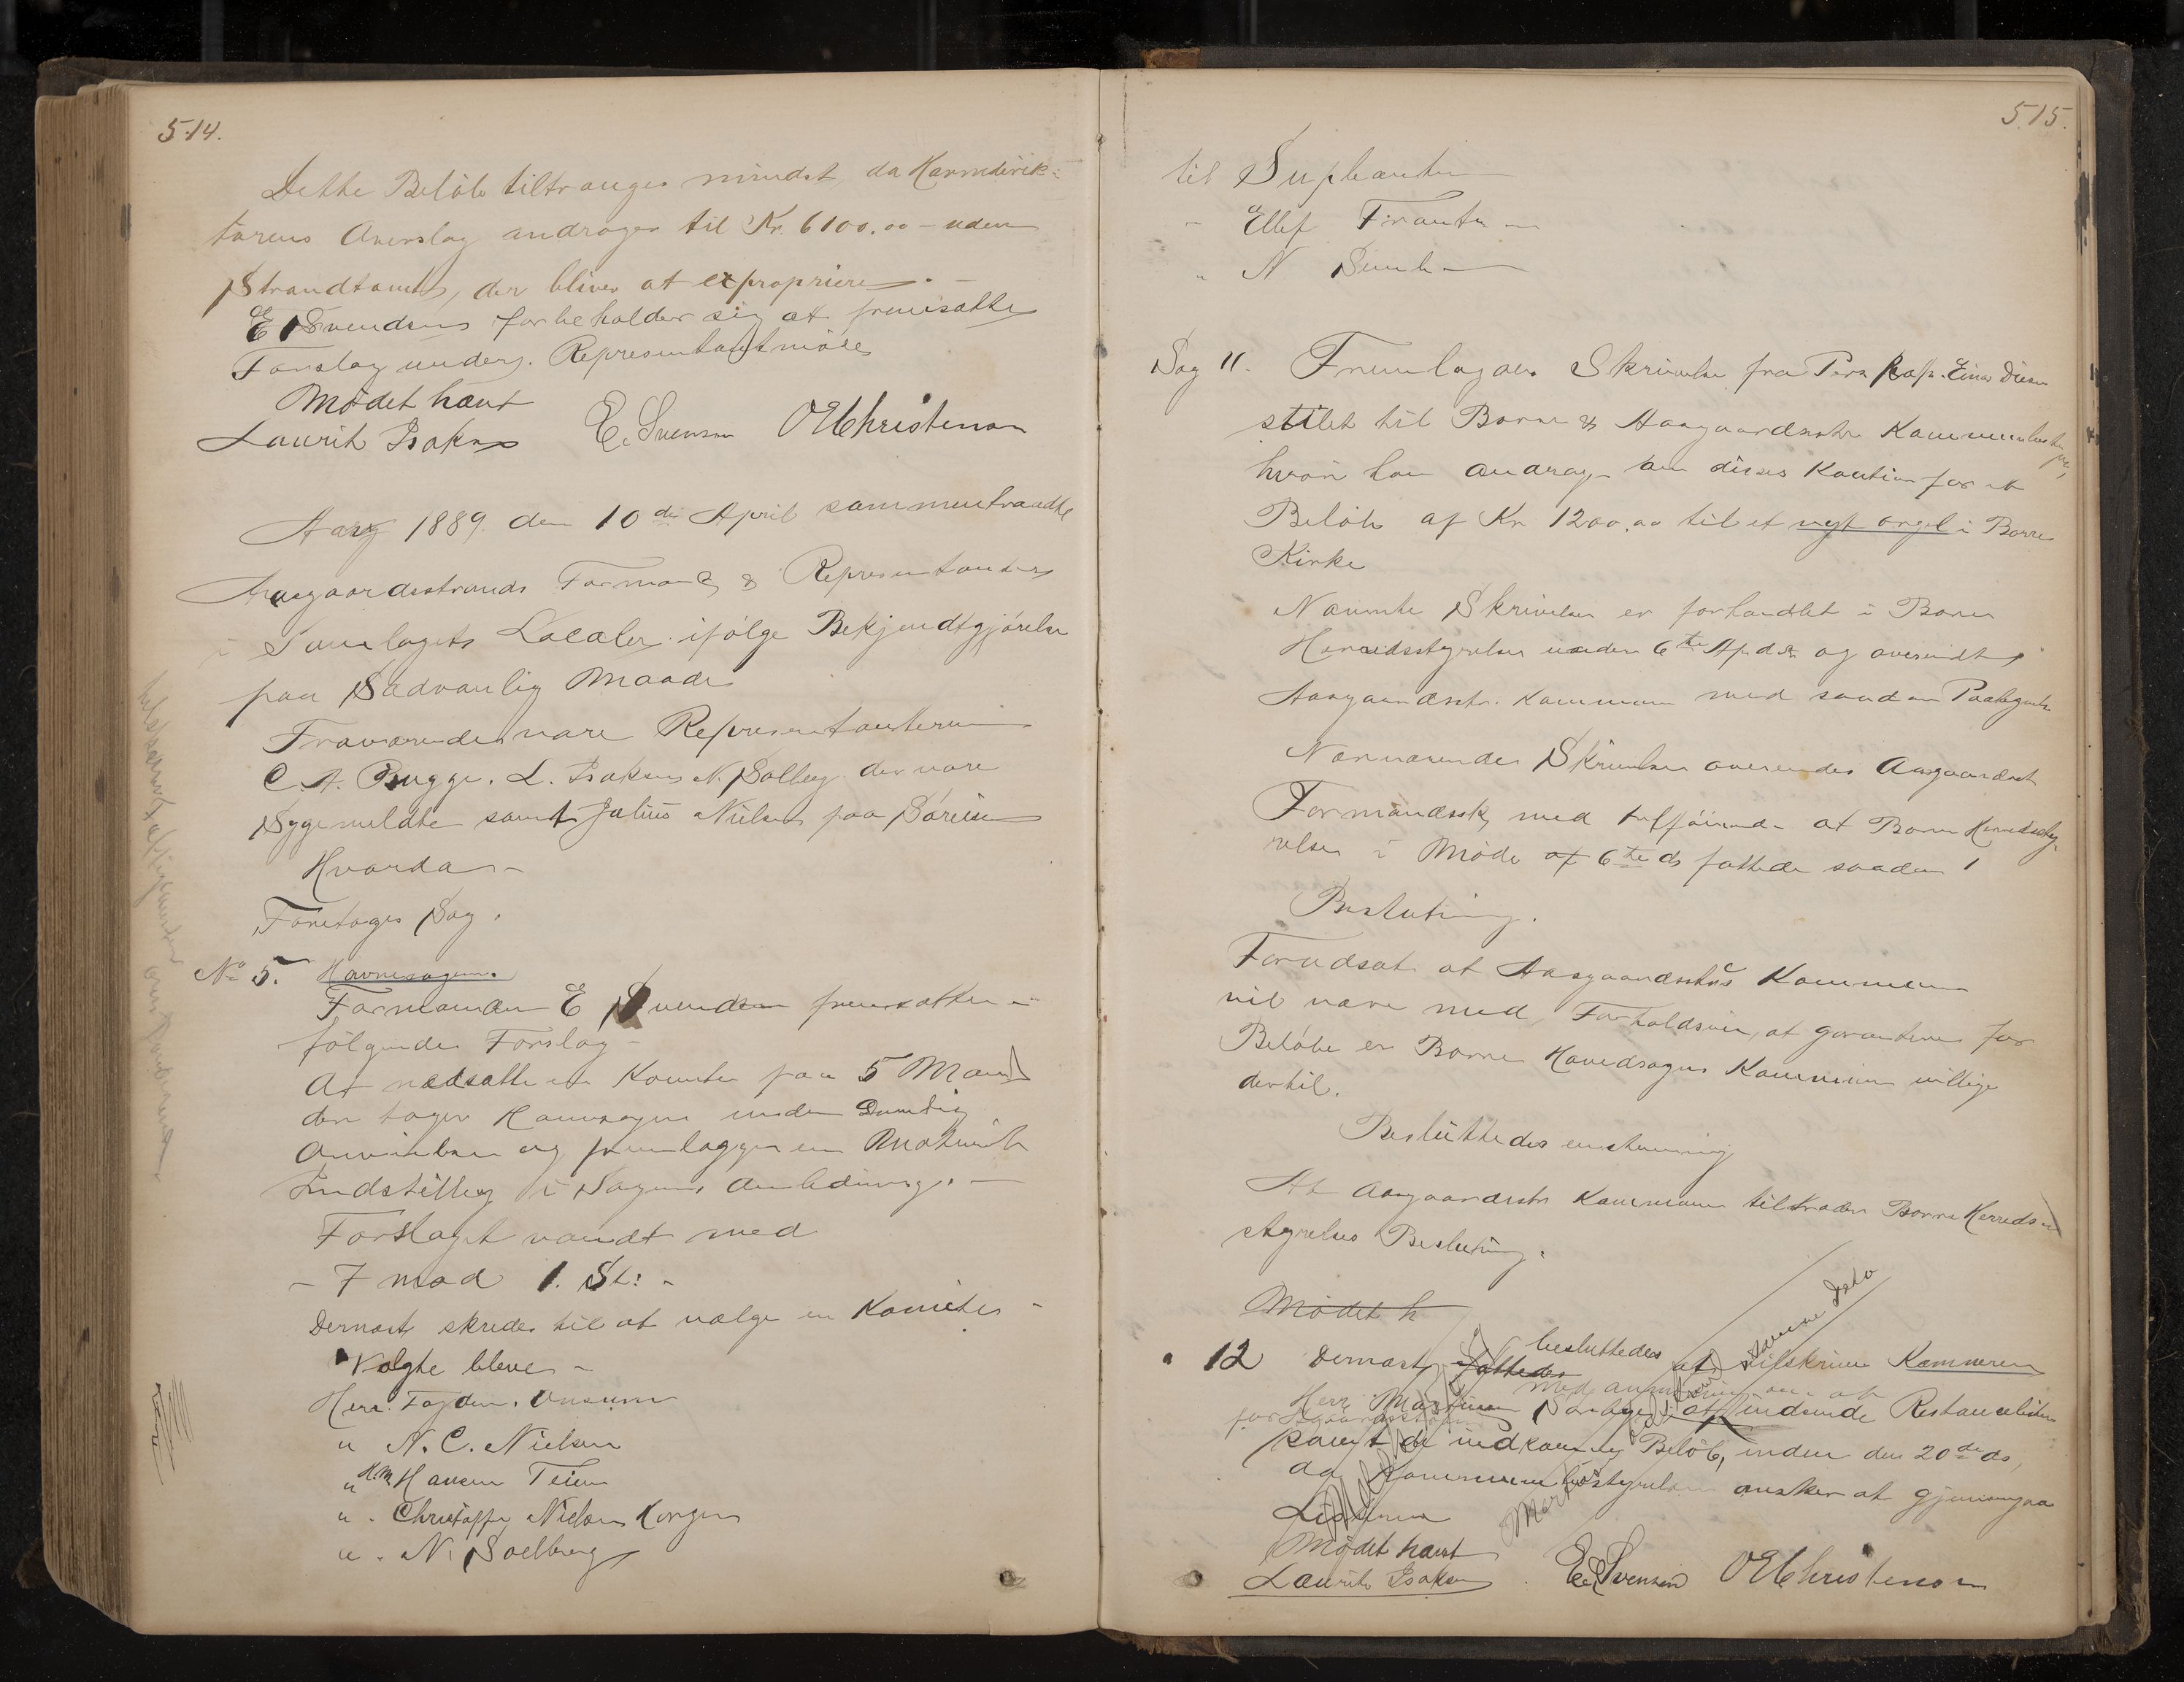 514.
Dette Beløb tiltrænges mindst, da Havnedirek-
tørens Overslag andrager til Kr. 6100.00 - uden
Strandtomt, der bliver at expropriere. -
E Svendsen forbeholder sig at fremsætte
Forslag under Representantmøde
Mødet hævt
Laurits Isaksen E. Svensen O E Christensen
Aar 1889 den 10de April sammentraadte
Aasgaardsstrands Formænd & Representanter
i Samlagets Localer ifølge Bekjendtgjørelse
paa Sædvanlig Maade
Fraværende vare Representanterne
C. A. Bugge. L. Isaksen N. Solberg der vare
Sygemeldte samt Julius Nielsen paa Søreise
Hvorda -
Foretages Sag.
No 5. Havnesagen.
Formanden E Svendsen fremsatte
følgende Forslag -
At nedsætte en Komite paa 5 Mand
der tager Havnesagen under
og fremlægger en Motiveret
Indstilling i Sagens Anledning. -
Forslaget vandt med
- 7 mod 1. St: -
Dernæst skredes til at vælge en Komite -
Valgte bleve -
Herr. Fogden. Onsum
" N. C. Nielsen
" H.M. Hansen Teien
" . Christoffer Nielsen Horgen
" . N. Soelberg
515.
til Suppleanter
" Ellef Frantzen
" N
Sag 11. Fremlagdes Skrivelse fra Pers. Kap.
stilet til Borre & Aasgaardsstr Kommunebestyrelse,
hvori han andrager om disses Kaution for et
Beløb af Kr 1200.00 til et nyt orgel i Borre
Kirke
Nævnte Skrivelse er forhandlet i Borre
Herredsstyrelse under 6te Ap. ds. og oversendt
Aasgaardsstr. Kommune med saadan Paategnelse
Nærværende Skrivelse oversendes Aasgaardsst
Formandssk, med tilføiende at Borre Herredssty-
relse i Møde af 6te ds fattede saadan
Beslutning.
Forudsat at Aasgaardsstrs Kommune
vil være med, Forholdsvis, at garantere for
Beløbet er Borre Hovedsogns Kommune villige
dertil.
Besluttedes enstemmig
At Aasgaardsstr Kommune tiltræder Borre Herreds-
styrelses Beslutning.
Mødet h
12 Dernæst fattedes besluttedes at tilskrive Kæmneren
Herr med anmodning om at indsende Restancelisten
for Aasgaardsstrand
samt de indkomne Beløb, inden den 20de ds,
da Kommunebestyrelsen ønsker at gjennemgaa
Listerne
Mødet hævt
Laurits Isaksen E. Svensen O E Christensen